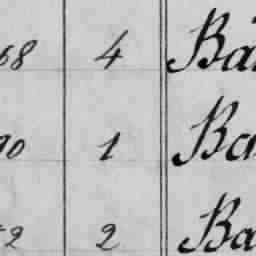 68 4 Ba
90 1 Ba
2 2 Ba